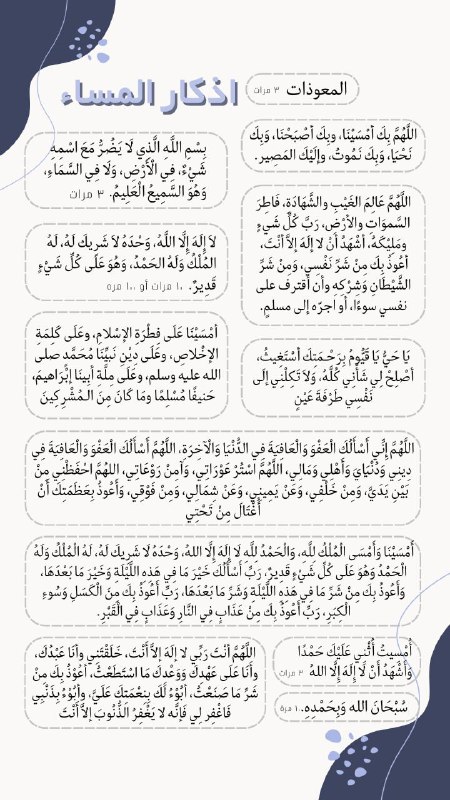 اذكار المساء
المعوذات ٣ مرات
اللَّهُمَّ بِكَ أَمْسَيْنَا، وبِكَ أَصْبَحْنَا، وَبِكَ
نَحْيَا، وَبِكَ نَمُوتُ، وإلَيْكَ المَصِير.
بِسْمِ اللَّه الَّذِي لَا يَضُرُّ مَعَ اسْمِهِ
شَيْءٌ، فِي الْأَرْضِ، وَلَا فِي السَّمَاءِ،
وَهُوَ السَّمِيعُ الْعَلِيمُ. ٣ مرات
اللَّهُمَّ عَالِمَ الغَيْبِ والشَّهَادَة، فَاطِرَ
السَّموَاتِ والأرْضِ، رَبَّ كُلِّ شَيءٍ
ومَلِيْكَهُ، أَشْهَدُ أَنْ لا إِلَهَ إِلاَّ أنْتَ،
أَعُوذُ بِكَ مِنْ شَرِّ نَفْسِي، وَمِنْ شَرِّ
الشَّيْطَانِ وَشِرْكِهِ وأن أقترف على
نفسي سوءًا، أو أجرّه إلى مسلم.
لاَ إِلَهَ إِلَّا اللَّهُ، وَحْدَهُ لَا شَرِيكَ لَهُ، لَهُ
المُلْكُ وَلَهُ الحَمْدُ، وَهُوَ عَلَى كُلِّ شَيْءٍ
قَدِيرٌ. ١٠ مرات أو ١٠٠ مرة
أَمْسَيْنَا عَلَى فِطْرَةِ الإسْلَامِ، وعَلَى كَلِمَةِ
الإخْلَاصِ، وعَلَى دِيْنِ نَبِيِّنَا مُحَمَّدٍ صلى
الله عليه وسلم، وعَلَى مِلَّةِ أَبِينَا إِبْرَاهِيمَ،
حَنِيفًا مُسْلِمًا ومَا كَانَ مِنَ المُشْرِكِينَ
يَا حَيُّ يَا قَيُّومُ بِرَحْمَتِكَ أَسْتَغِيثُ،
أَصْلِحْ لِي شَأْنِي كُلَّهُ، وَلاَ تَكِلْنِي إِلَى
نَفْسِي طَرْفَةَ عَيْنٍ
اللَّهُمَّ إِنِّي أَسْأَلُكَ الْعَفْوَ وَالْعَافِيَةَ فِي الدُّنْيَا وَالْآخِرَةِ، اللَّهُمَّ أَسْأَلُكَ الْعَفْوَ وَالْعَافِيَةَ فِي
دِينِي وَدُنْيَايَ وَأَهْلِي وَمَالِي، اللَّهُمَّ اسْتُرْ عَوْرَاتِي، وَآمِنْ رَوْعَاتِي، اللهُمَّ احْفَظْنِي مِنْ
بَيْنِ يَدَيَّ، وَمِنْ خَلْفِي، وَعَنْ يَمِينِي، وَعَنْ شِمَالِي، وَمِنْ فَوْقِي، وَأَعُوذُ بِعَظَمَتِكَ أَنْ
أُغْتَالَ مِنْ تَحْتِي
أَمْسَيْنَا وَأَمْسَى الْمُلْكُ لِلَّهِ، وَالْحَمْدُ لِلَّهِ لَا إِلَهَ إِلَّا اللهُ، وَحْدَهُ لَا شَرِيكَ لَهُ، لَهُ الْمُلْكُ وَلَهُ
الْحَمْدُ وَهُوَ عَلَى كُلِّ شَيْءٍ قَدِيرٌ، رَبِّ أَسْأَلُكَ خَيْرَ مَا فِي هَذِهِ اللَّيْلَةِ وَخَيْرَ مَا بَعْدَهَا،
وَأَعُوذُ بِكَ مِنْ شَرِّ مَا فِي هَذِهِ اللَّيْلَةِ وَشَرِّ مَا بَعْدَهَا، رَبِّ أَعُوذُ بِكَ مِنَ الْكَسَلِ وَسُوءِ
الْكِبَرِ، رَبِّ أَعُوذُ بِكَ مِنْ عَذَابٍ فِي النَّارِ وَعَذَابٍ فِي الْقَبْرِ.
أمْسيتُ أُثْنِي عَلَيْكَ حَمْدًا
وَأَشْهَدُ أَنْ لَا إِلَهَ إِلَّا اللهُ ٣ مرات
سُبْحَانَ الله وَبِحَمْدِهِ. ١٠٠ مرة
اللَّهُمَّ أَنْتَ رَبِّي لا إِلَهَ إِلاَّ أَنْتَ، خَلَقْتَنِي وأَنَا عَبْدُكَ،
وأَنَا عَلَى عَهْدِكَ وَوَعْدِكَ مَا اسْتَطَعْتُ، أَعُوْذُ بِكَ مِنْ
شَرِّ مَا صَنَعْتُ، أَبُوْءُ لَكَ بِنِعْمَتِكَ عَلَيَّ، وأَبُوْءُ بِذَنْبِي
فَاغْفِر لِي فَإنَّه لا يَغْفِرُ الذُّنُوبَ إلاَّ أَنْتَ